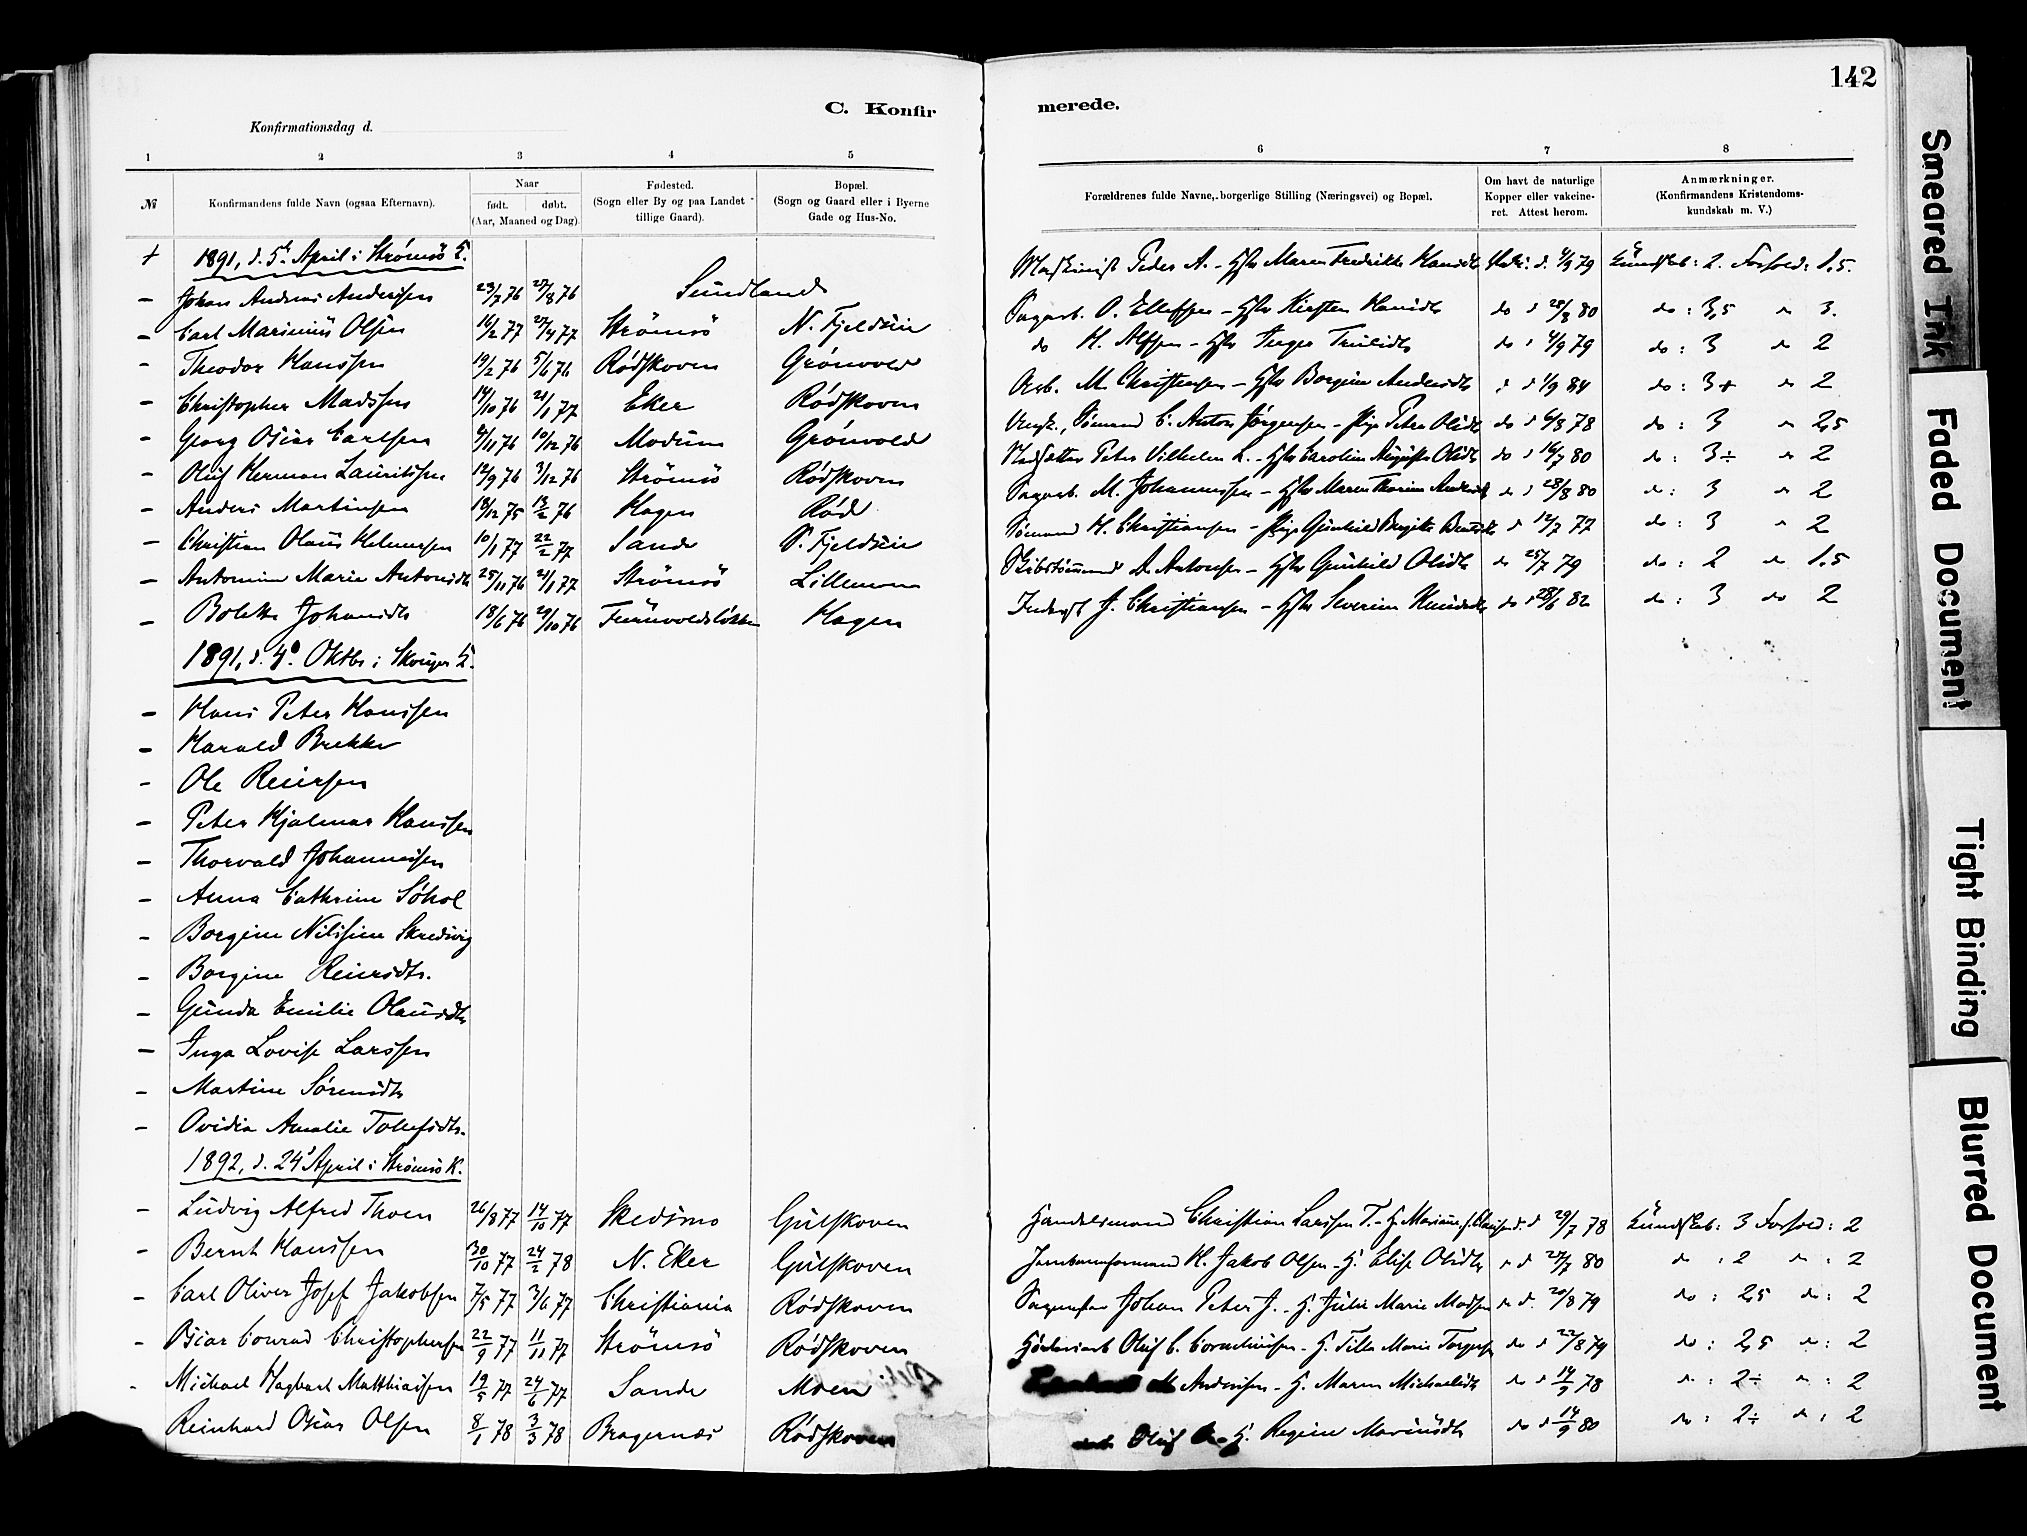 142
C. Konfir
merede.
Konfirmationsdag d.
1 2 3 4 5 6 7 8
№ Konfirmandens fulde Navn (ogsaa Efternavn).
Naar
født. døbt.
(Aar, Maaned og Dag).
Fødested.
(Sogn eller By og paa Landet
tillige Gaard).
Bopæl.
(Sogn og Gaard eller i Byerne
Gade og Hus-No.
Forældrenes fulde Navne, borgerlige Stilling (Næringsvei) og Bopæl.
Om havt de naturlige
Kopper eller vakcine-
ret. Attest herom.
Anmærkninger.
(Konfirmandens Kristendoms-
kundskab m. V.)
+ 1891, d. 5t April i Strømsö K.
– Johan Andreas Anderssen 23/7 76 27/8 76 Sundland Maskinist Peder A. - Hstr Maren Fredrikke Hansdtr Vakc. d. 4/9 79 Kundskab: 2. Forhold: 1,5.
– Carl Marinius Olsen 16/2 77 27/4 77 Strömsö N. Fjeldsüie Sagarb. O. Ellefsen - Hstr Kirsten Hansdtr do d 28/8 80 do : 3,5 do 3.
– Theodor Hanssen 19/2 76 5/6 76 Rødskoven Grønvold do H. Alfsen - Hstr do d 4/9 79 do : 3 do 2
– Christopher Madssen 14/10 76 21/1 77 Eker Rødskoven Arb. M. Christensen - Hstr Borgine Andersdtr 1/9 84 do : 3+ do 2
– Georg Oscar Carlsen 4/11 76 10/12 76 Modum Grönvold Ungk., Sømand C. Anton Jørgensen - Pige Petra Olsdtr do d 6/8 78 do : 3 do 2,5
– Oluf Herman Lauritssen 12/9 76 3/12 76 Strömsö Rødskoven Peter Vilhelm L. - Hstr Karoline Auguste Olsdtr do d 16/7 80 do : 3÷ do 2
– Anders Martinsen 18/12 75 13/2 76 Hagen Rød Sagarb. M. Johannessen - Hstr Maren Andersdtr do d 28/8 80 do : 3 do 2
– Christian Olaus Helmersen 10/1 77 22/2 77 Sande S. Fjeldsüie Sømand H. Christiansen - Pige Gunhild Birgitte 12/7 77 do : 3 do 2
– Antomine Marie Antonsdtr 25/11 76 21/1 77 Strömsö Lillemoen Skibstømmermand A. Antonsen - Hstr Gunhild Olsdtr do 25/7 79 do : 2 do 1,5
– Bolette Johansdtr 18/6 76 29/10 76 Hagen Inderst J. Christiansen - Hstr Severine Knudsdtr do d 28/6 82 do : 3 do 2
1891, d. 4d. Oktbr i Skouger K.
– Hans Peter Hanssen
– Harald Brekke
– Ole Reiersen
– Peter Hjalmar Hanssen
– Thorvald Johannessen
– Anna Cathrine Søhol
– Borgine Nilssine Skredsvig
– Borgine Reiersdtr.
– Gunda Emilie Olausdtr
– Inga Lovise Larssen
– Martine Sörensdtr
– Ovidia Amalie Tollefsdtr.
1892, d. 24d April i Strømsö K.
– Ludvig Alfred Thoen 26/8 77 14/10 77 Skedsmo Gulskoven Handelsmand Christian Larssen T. - H. Mariane d 29/7 78 Kundskab: 3 Forhold: 2
– Bernt Hanssen 30/10 77 24/2 78 N. Eker Gulskoven Jernbaneformand H. Jakob Olsen - H. Elise Olsdtr do d 27/7 80 do : 2 do : 2
– Carl Oliver Josef Jakobsen 7/5 77 3/6 77 Christiania Rødskoven Johan Peter J. - H. Julie Marie Madsen do d. 20/8 79 do : 2,5 do : 2
– Oscar Conrad Christophersen 22/9 77 11/11 77 Strömsö Rødskoven Oluf C. Corneliussen - H. Marie Torgersen do d 22/8 79 do : 2,5 do : 2
– Michael Hagbart Matthiassen 19/5 77 24/6 77 Sande Moen M Anderssen - H. Maren Michaelsdtr do d 14/9 78 do : 2÷ do : 2
Reinhard Oscar Olsen 8/1 78 3/3 78 Bragernæs Rødskoven Oluf O. - H. Regine Mariusdtr do d 14/9 80 do : 2÷ do : 2
Smeared Ink
Faded Document
Tight Binding
Blurred Document